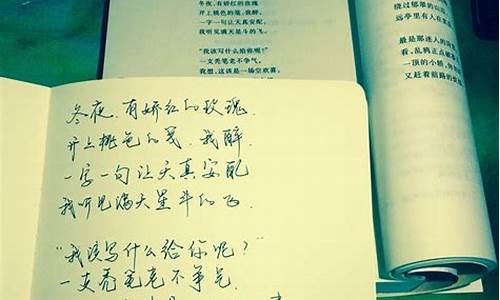 冬夜，有娇红的玫瑰
开上桃色的笺，我醉，
一字一句让天真安配
我听见满天星斗的飞。
“我该写什么给你呢？”
一支秃笔老不争气，
我想，这该是一场空欢喜。
绕过郁翠的山
远亭里有人在
最是那迷人的
看，乱鸦正点破
一顶的小轿，
又赶着前路的
冬夜.有娇红的玫瑰.
开上桃色的笺.我醉.
一字一句让天真安配
我听见满天星斗的飞.
“我该写什么给你呢？”
一支秃笔老不争气.